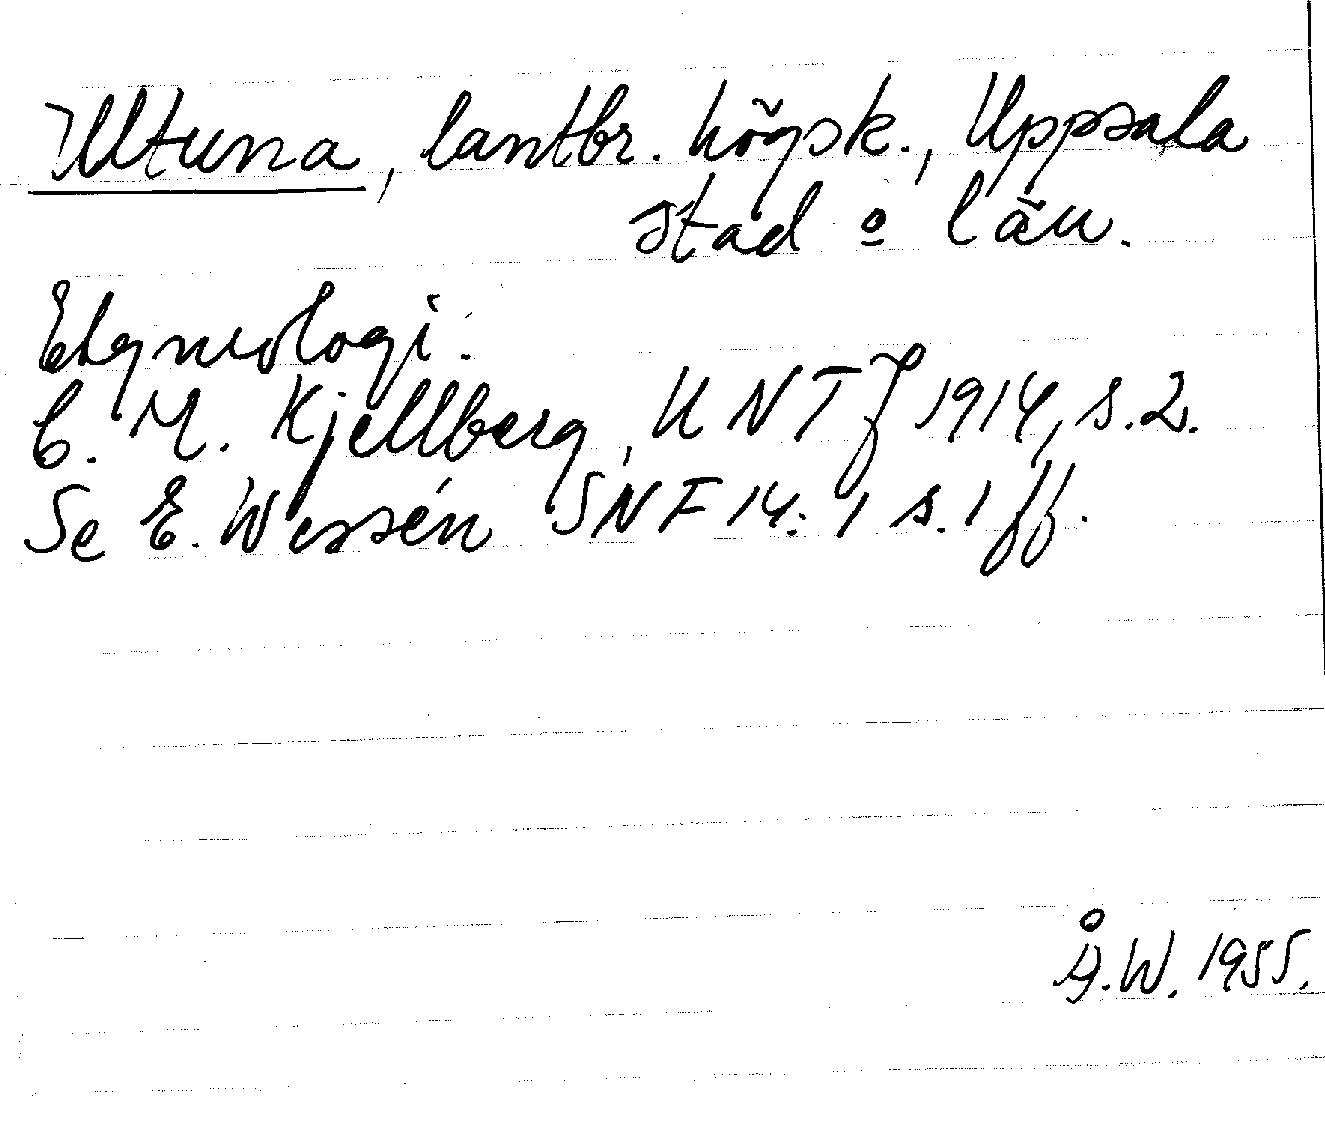 Ultuna, lantbr. högsk., Uppsala
stad o län.
Etymologi.
C. M. Kjellberg, UNT J 1914, s. 2.
Se E. Wessén SNF 14: 1 s. 1 ff.
Å.W. 1955.